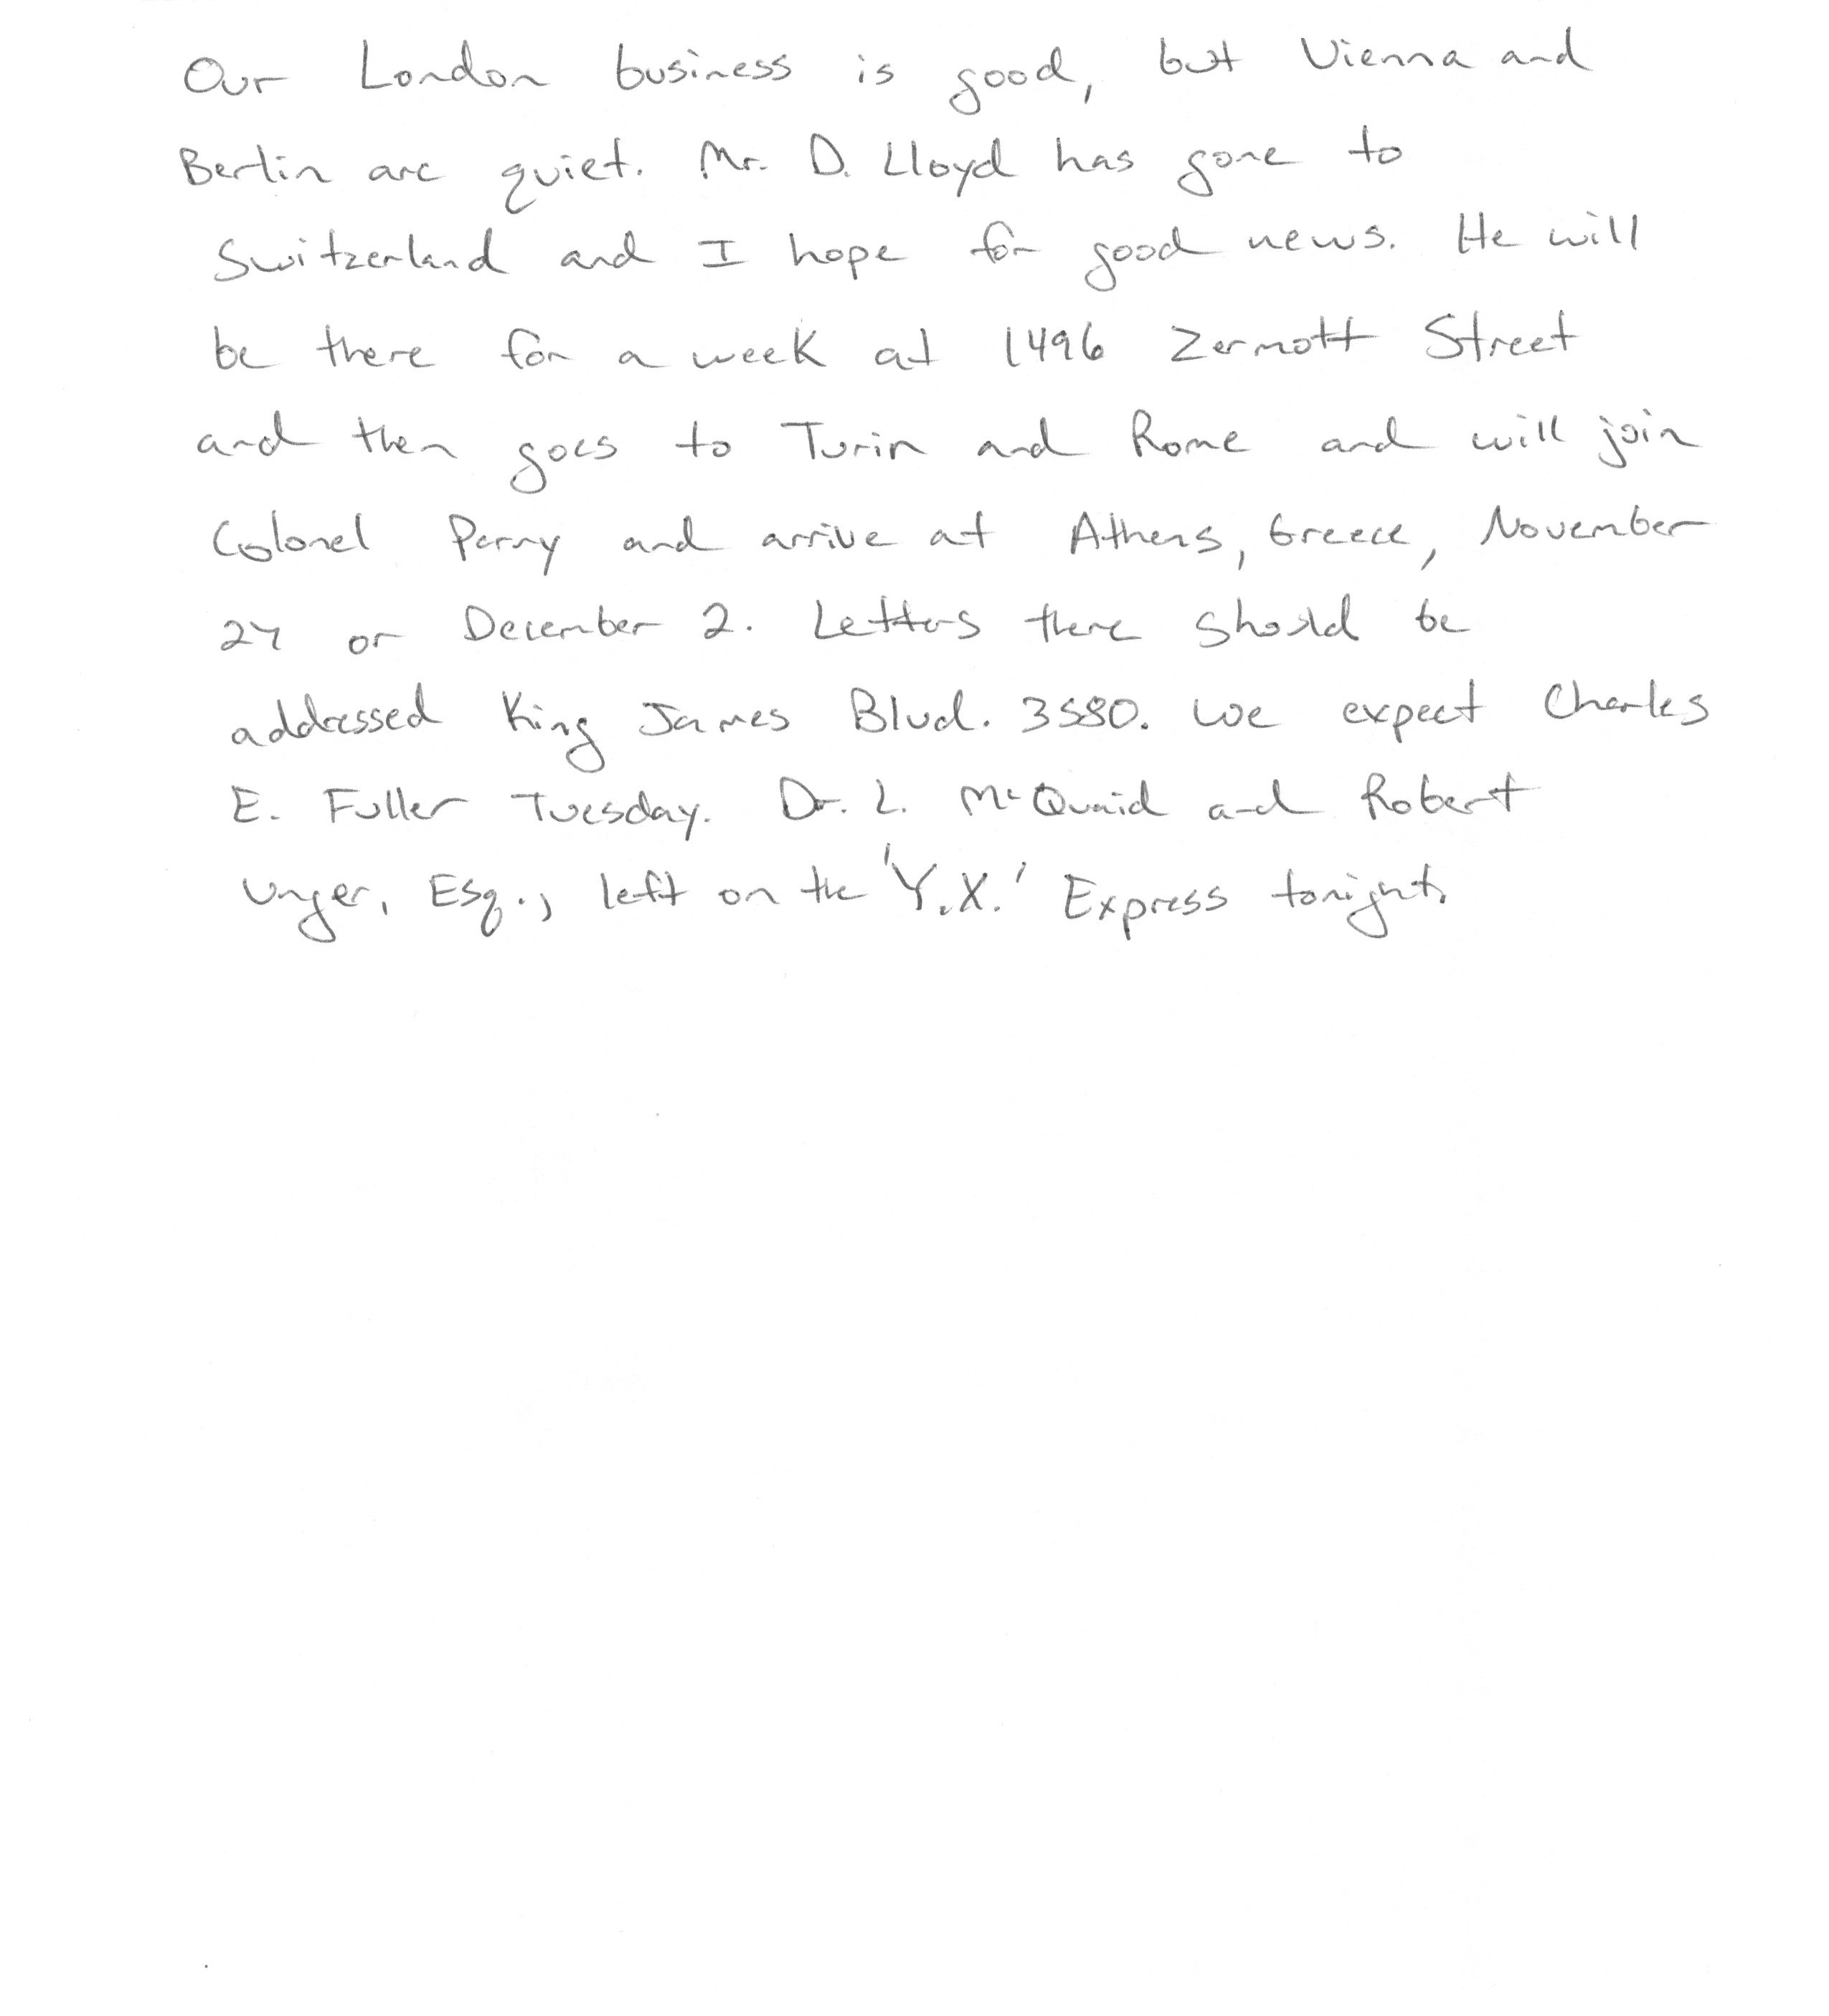 Our London business is good, but Vienna and
Berlin are quiet. Mr. D. Lloyd has gone to
Switzerland and I hope for good news. He will
be there for a week at 1496 Zermott Street
and then goes to Turin and Rome and will join
Colonel Parry and arrive at Athens, Greece, November
27 or December 2. Letters there should be
addressed King James Blvd. 3580. We expect Charles
E. Fuller Tuesday. Dr. L. McQuaid and Robert
Unger, Esq., left on the 'Y.X.' Express tonight.